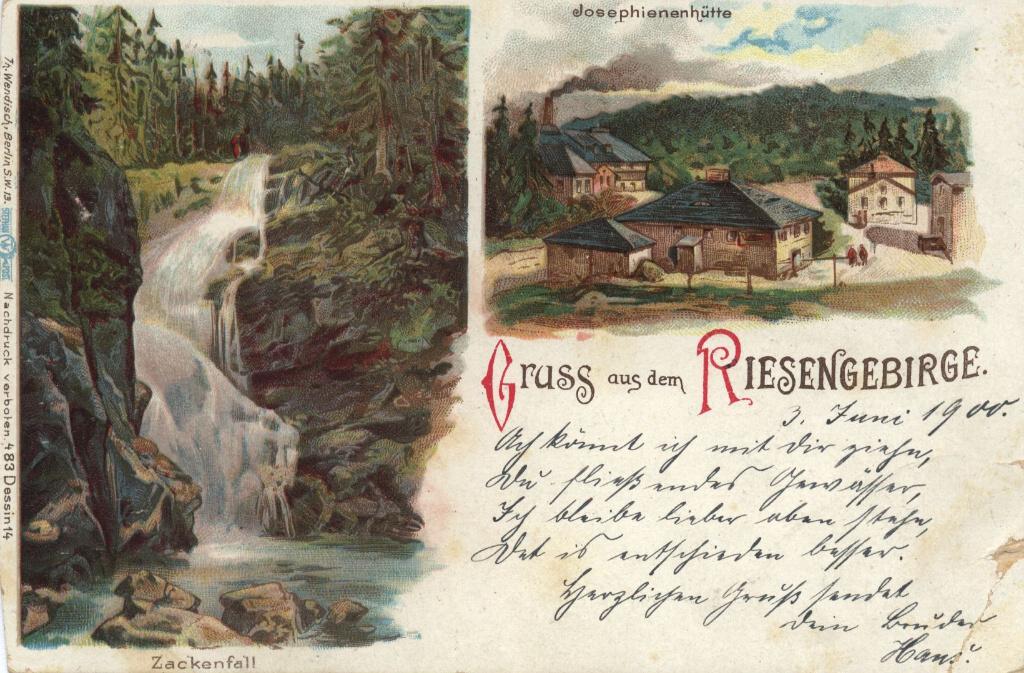 Josephienenhütte
Gruss aus dem Riesengebirge.
3. Juni 1900.
Ach könnt ich mit Dir ziehn,
Du fließendes Gewässer,
Ich bleibe lieber oben stehn,
Det is entschieden besser.
Herzlichen Gruß sendet
Dein Bruder
Hans.
Zackenfall
Th. Wendisch, Berlin S.W. 13.
Nachdruck verboten. 483 Dessin 14